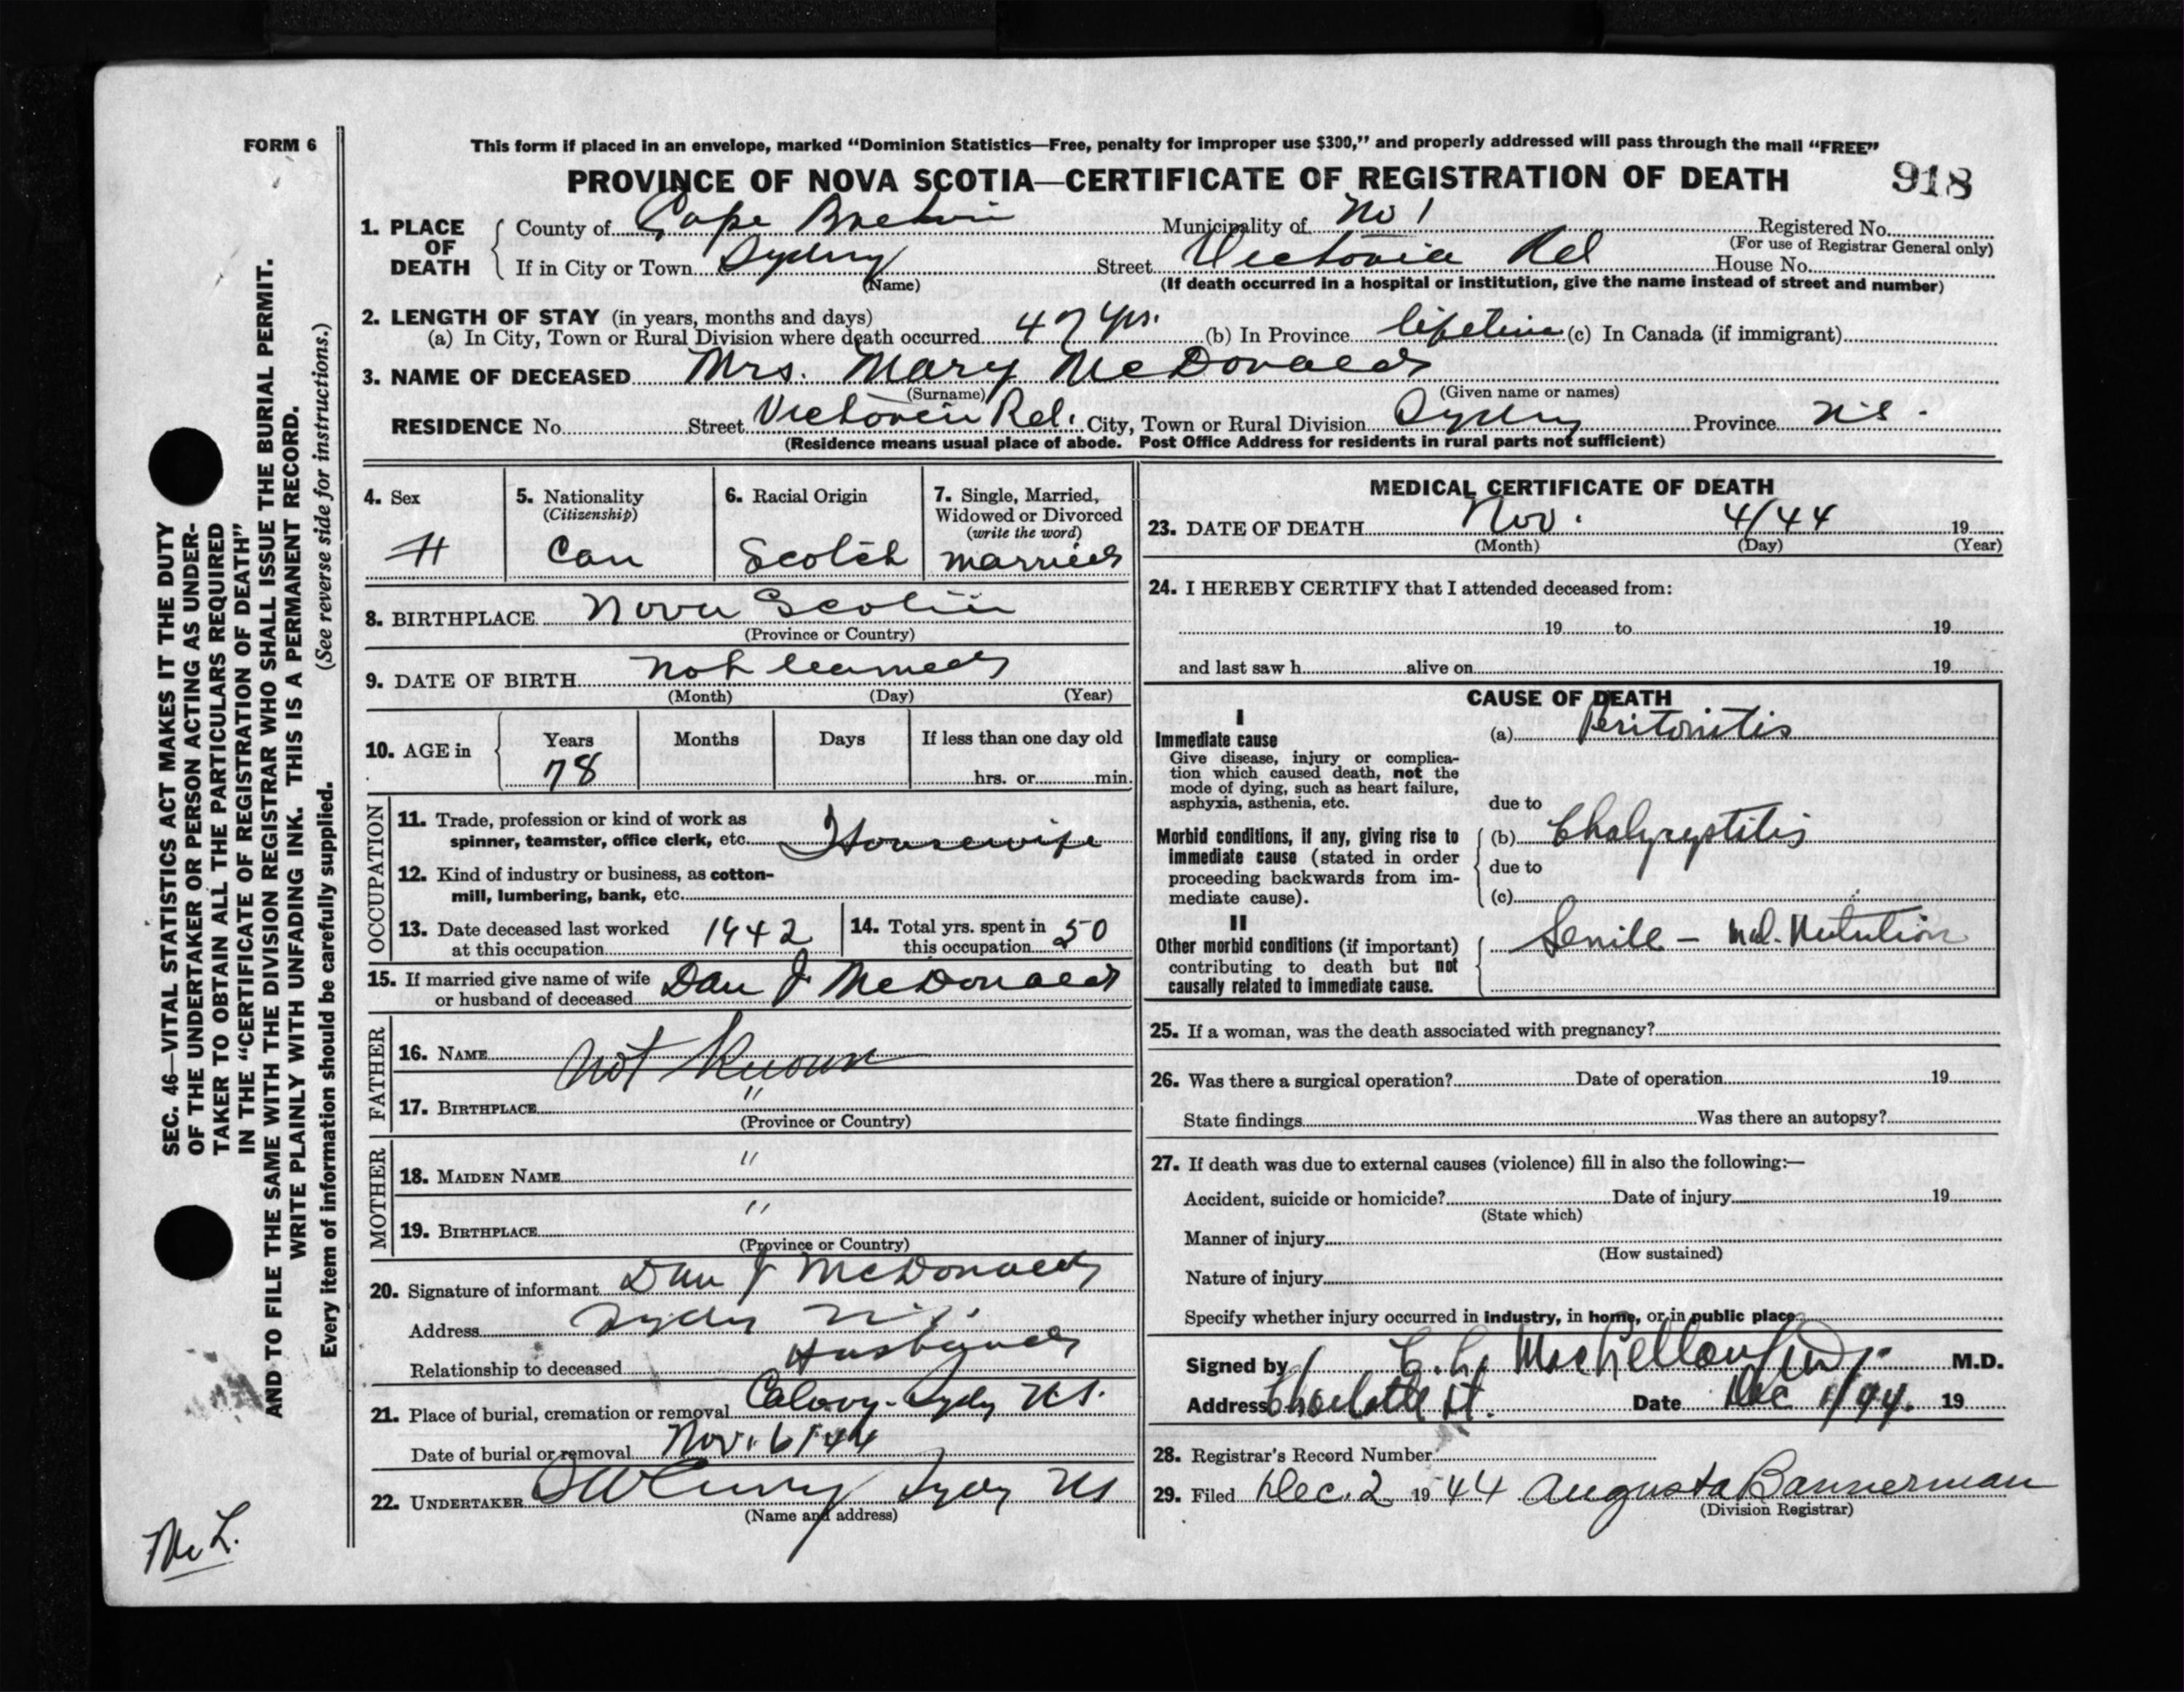 FORM 6
This form if placed in an envelope, marked “Dominion Statistics—Free, penalty for improper use $300,” and properly addressed will pass through the mail “FREE”
PROVINCE OF NOVA SCOTIA—CERTIFICATE OF REGISTRATION OF DEATH 918
1. PLACE OF DEATH County of Cape Breton Municipality of No 1 Registered No.
(For use of Registrar General only)
If in City or Town Sydney Street Victoria Rd House No.
(Name) (If death occurred in a hospital or institution, give the name instead of street and number)
2. LENGTH OF STAY (in years, months and days)
(a) In City, Town or Rural Division where death occurred 47 yrs. (b) In Province lifetime (c) In Canada (if immigrant)
3. NAME OF DECEASED Mrs. Mary McDonald
(Surname) (Given name or names)
RESIDENCE No. Street Victoria Rd. City, Town or Rural Division Sydney Province N.S.
(Residence means usual place of abode. Post Office Address for residents in rural parts not sufficient)
4. Sex
5. Nationality (Citizenship) Can
6. Racial Origin Scotch
7. Single, Married, Widowed or Divorced (write the word) married
8. BIRTHPLACE Nova Scotia
(Province or Country)
9. DATE OF BIRTH not learned
(Month) (Day) (Year)
10. AGE in Years Months Days If less than one day old
78 hrs. or min.
OCCUPATION
11. Trade, profession or kind of work as
spinner, teamster, office clerk, etc. Housewife
12. Kind of industry or business, as cotton-
mill, lumbering, bank, etc.
13. Date deceased last worked at this occupation 1942
14. Total yrs. spent in this occupation 50
15. If married give name of wife
or husband of deceased Dan J McDonald
FATHER
16. NAME not Known
17. BIRTHPLACE "
(Province or Country)
MOTHER
18. MAIDEN NAME "
19. BIRTHPLACE "
(Province or Country)
20. Signature of informant Dan J McDonald
Address Sydney N.S.
Relationship to deceased Husband
21. Place of burial, cremation or removal Calvary-Sydney N.S.
Date of burial or removal Nov. 6/44
22. UNDERTAKER Sydney NS
(Name and address)
MEDICAL CERTIFICATE OF DEATH
23. DATE OF DEATH Nov. 4/44 19
(Month) (Day) (Year)
24. I HEREBY CERTIFY that I attended deceased from:
19 to 19
and last saw h alive on 19
CAUSE OF DEATH
I
Immediate cause (a) Peritonitis
Give disease, injury or complica-
tion which caused death, not the
mode of dying, such as heart failure,
asphyxia, asthenia, etc.
due to
Morbid conditions, if any, giving rise to (b) Cholycystitis
immediate cause (stated in order due to
proceeding backwards from im-
mediate cause). (c)
II
Other morbid conditions (if important) Senile - Mal. Nutrition
contributing to death but not
causally related to immediate cause.
25. If a woman, was the death associated with pregnancy?
26. Was there a surgical operation? Date of operation 19
State findings Was there an autopsy?
27. If death was due to external causes (violence) fill in also the following:—
Accident, suicide or homicide? Date of injury 19
(State which)
Manner of injury
(How sustained)
Nature of injury
Specify whether injury occurred in industry, in home, or in public place
Signed by M.D.
Address Charlotte St. Date Dec 1/44. 19
28. Registrar's Record Number
29. Filed Dec. 2 1944 Augusta Bannerman
(Division Registrar)
SEC. 46—VITAL STATISTICS ACT MAKES IT THE DUTY
OF THE UNDERTAKER OR PERSON ACTING AS UNDER-
TAKER TO OBTAIN ALL THE PARTICULARS REQUIRED
IN THE “CERTIFICATE OF REGISTRATION OF DEATH”
AND TO FILE THE SAME WITH THE DIVISION REGISTRAR WHO SHALL ISSUE THE BURIAL PERMIT.
WRITE PLAINLY WITH UNFADING INK. THIS IS A PERMANENT RECORD.
Every item of information should be carefully supplied. (See reverse side for instructions.)
Mc L.